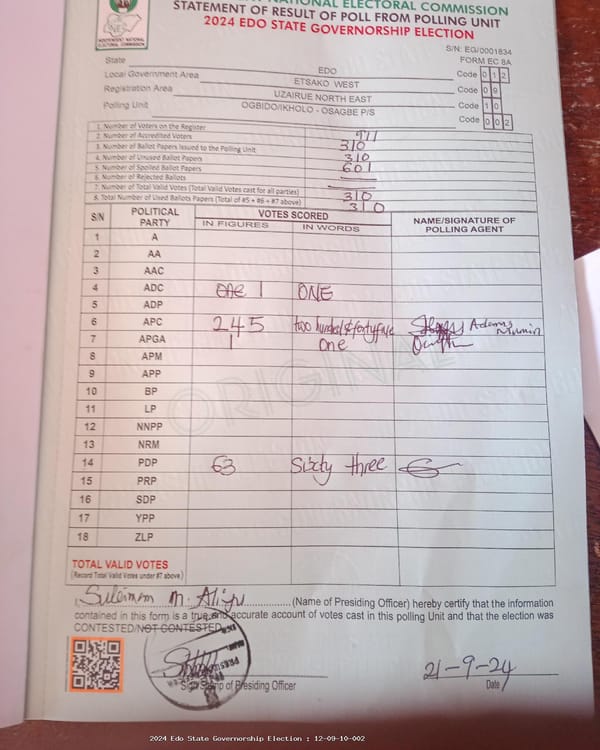 NATIONAL ELECTORAL COMMISSION
STATEMENT OF RESULT OF POLL FROM POLLING UNIT
2024 EDO STATE GOVERNORSHIP ELECTION
INDEPENDENT NATIONAL ELECTORAL COMMISSION
S/N: EG/0001834
FORM EC 8A
State EDO Code 0 1 2
Local Government Area ETSAKO WEST Code 0 9
Registration Area UZAIRUE NORTH EAST Code 1 0
Polling Unit OGBIDO/IKHOLO - OSAGBE P/S Code 0 0 2
1. Number of Voters on the Register 911
2. Number of Accredited Voters 310
3. Number of Ballot Papers Issued to the Polling Unit
4. Number of Unused Ballot Papers 310
5. Number of Spoiled Ballot Papers 601
6. Number of Rejected Ballots
7. Number of Total Valid Votes (Total Valid Votes cast for all parties) 310
8. Total Number of Used Ballots Papers (Total of #5 + #6 + #7 above) 310
S/N POLITICAL PARTY VOTES SCORED NAME/SIGNATURE OF POLLING AGENT
IN FIGURES IN WORDS
1 A
2 AA
3 AAC
4 ADC 1 ONE
5 ADP
6 APC 245 two hundred & forty five Adams Mumin
7 APGA 1 One
8 APM
9 APP
10 BP
11 LP
12 NNPP
13 NRM
14 PDP 63 Sixty three
15 PRP
16 SDP
17 YPP
18 ZLP
ORIGINAL
TOTAL VALID VOTES
(Record Total Valid Votes under #7 above)
Suleiman M. Aliyu (Name of Presiding Officer) hereby certify that the information
contained in this form is a true and accurate account of votes cast in this polling Unit and that the election was
CONTESTED/NOT CONTESTED
21-9-24
Sign/Stamp of Presiding Officer Date
2024 Edo State Governorship Election : 12-09-10-002